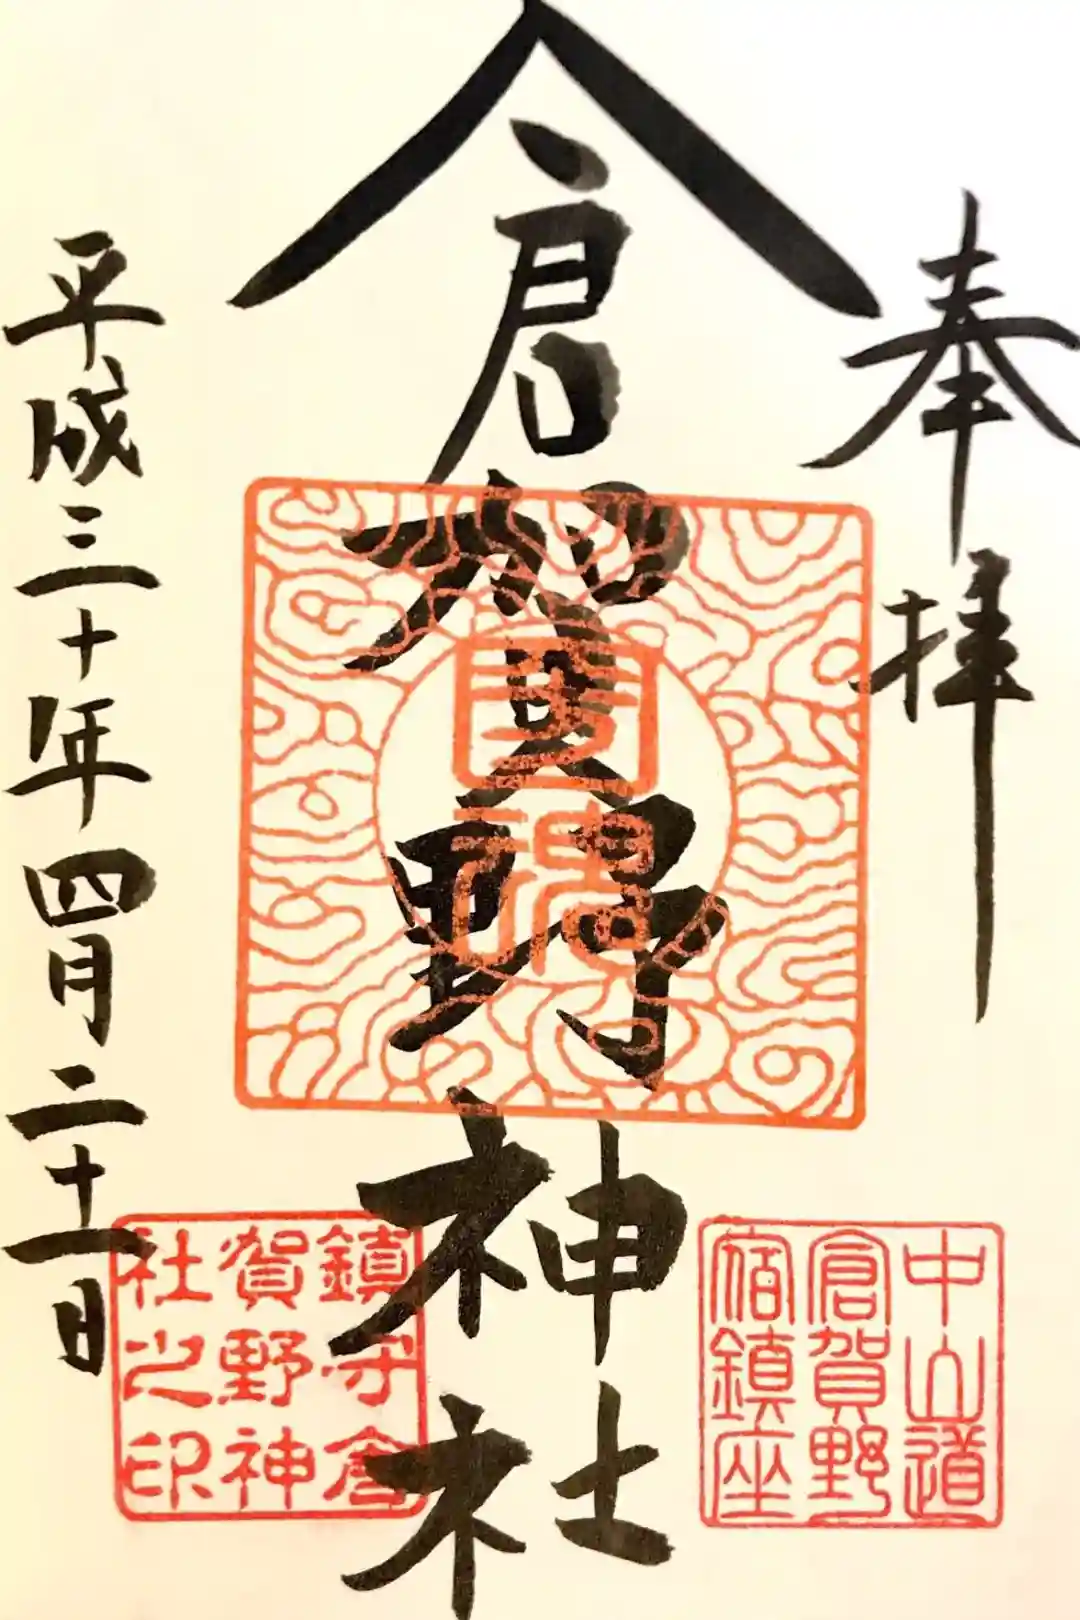 奉拝
倉賀野神社
平成三十年四月二十一日
中山道
倉賀野
宿鎮座
鎮守倉
賀野神
社之印
國魂